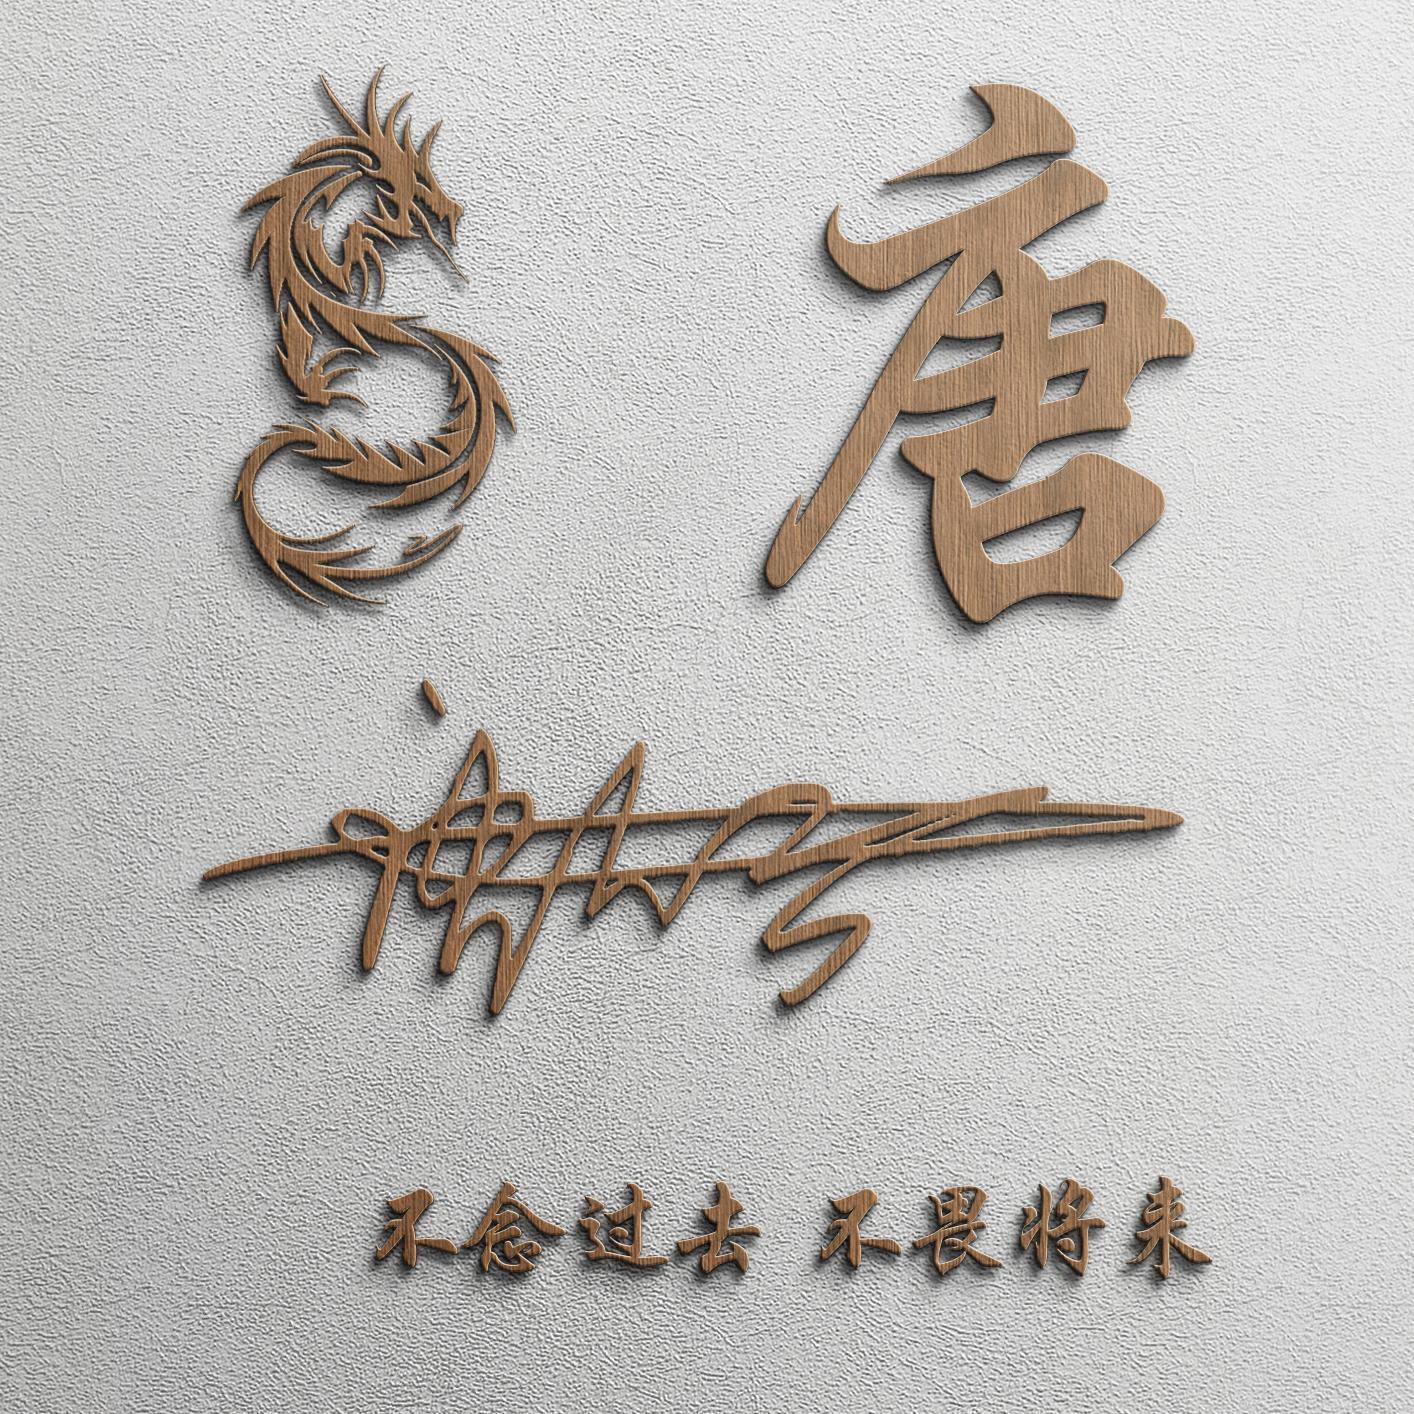 唐
不念过去 不畏将来